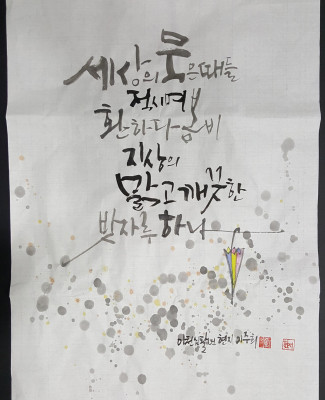 세상의 묵은때들
적시며
환하다 봄비
지상의
맑고 깨끗한
빗자루 하나